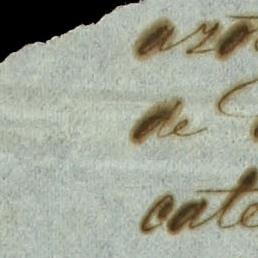 azos
de
cate